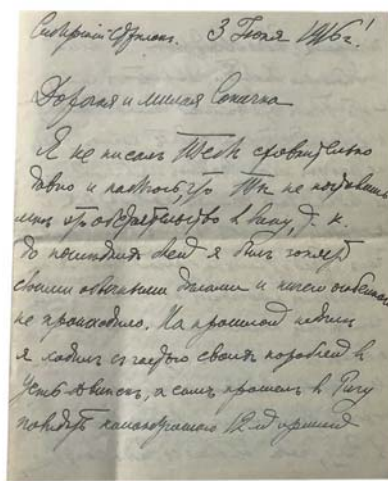 Сибирскій Стрѣлокъ. 3 Іюля 1916 г.
Дорогая и милая Сонечка
Я не писалъ Тебѣ сравнительно
давно и надѣюсь, что Ты не поставишь
мнѣ это обстоятельство въ вину, т. к.
до послѣднихъ дней я былъ занятъ
своими обычными дѣлами и ничего особеннаго
не происходило. На прошлой недѣлѣ
я ходилъ съ частью своихъ кораблей въ
Усть-Двинскъ, а самъ прошелъ въ Ригу
повидать командующаго 12-ой арміей